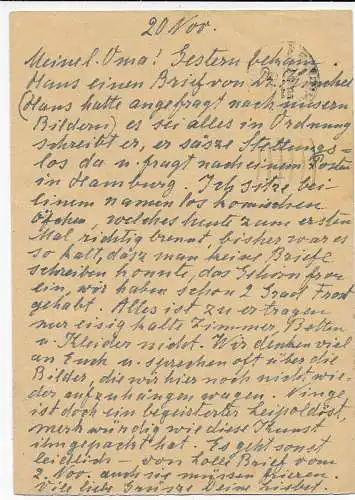 20 Nov.
Meine l. Oma! Gestern bekam
Hans einen Brief von Dr.
(Hans hatte angefragt nach unsern
Bildern) es sei alles in Ordnung
schreibt er, er säsze Stellungs=
los da u. fragt nach einem Posten
in Hamburg. Ich sitze bei
einem namenlos komischen
Öfchen, welches heute zum ersten
Mal richtig brennt, bisher war es
so kalt, dasz man keine Briefe
schreiben konnte, das Gehirn fror
ein, wir haben schon 2 Grad Frost
gehabt. Alles ist zu ertragen
nur eisig kalte Zimmer, Betten
u. Kleider nicht. Wir denken viel
an Euch u. sprechen oft über die
Bilder, die wir hier noch nicht wie-
der aufzuhängen wagen.
ist doch ein begeisterter
merkwürdig wie diese Kunst
ihn gepackt hat. Es geht sonst
leidlich - von Brief vom
2. Nov. auch sie müssen frieren.
Viele liebe Grüsze Deine